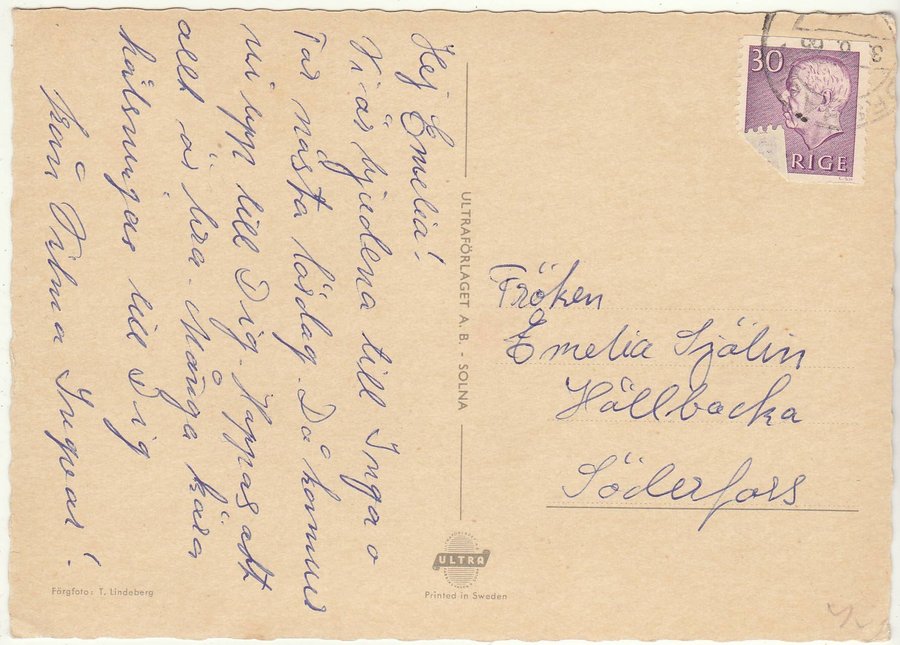 Hej Emelia!
Vi är bjudena till Inga o
Tor nästa lördag. Då kommer
vi upp till Dig. Hoppas att
allt är bra. Många kära
hälsningar till Dig
från Vilma Ingvar!
ULTRAFÖRLAGET A. B. - SOLNA
30
RIGE
Fröken
Emelia Sjölin
Hållbacka
Söderfors
ULTRA
Printed in Sweden
Färgfoto: T. Lindeberg